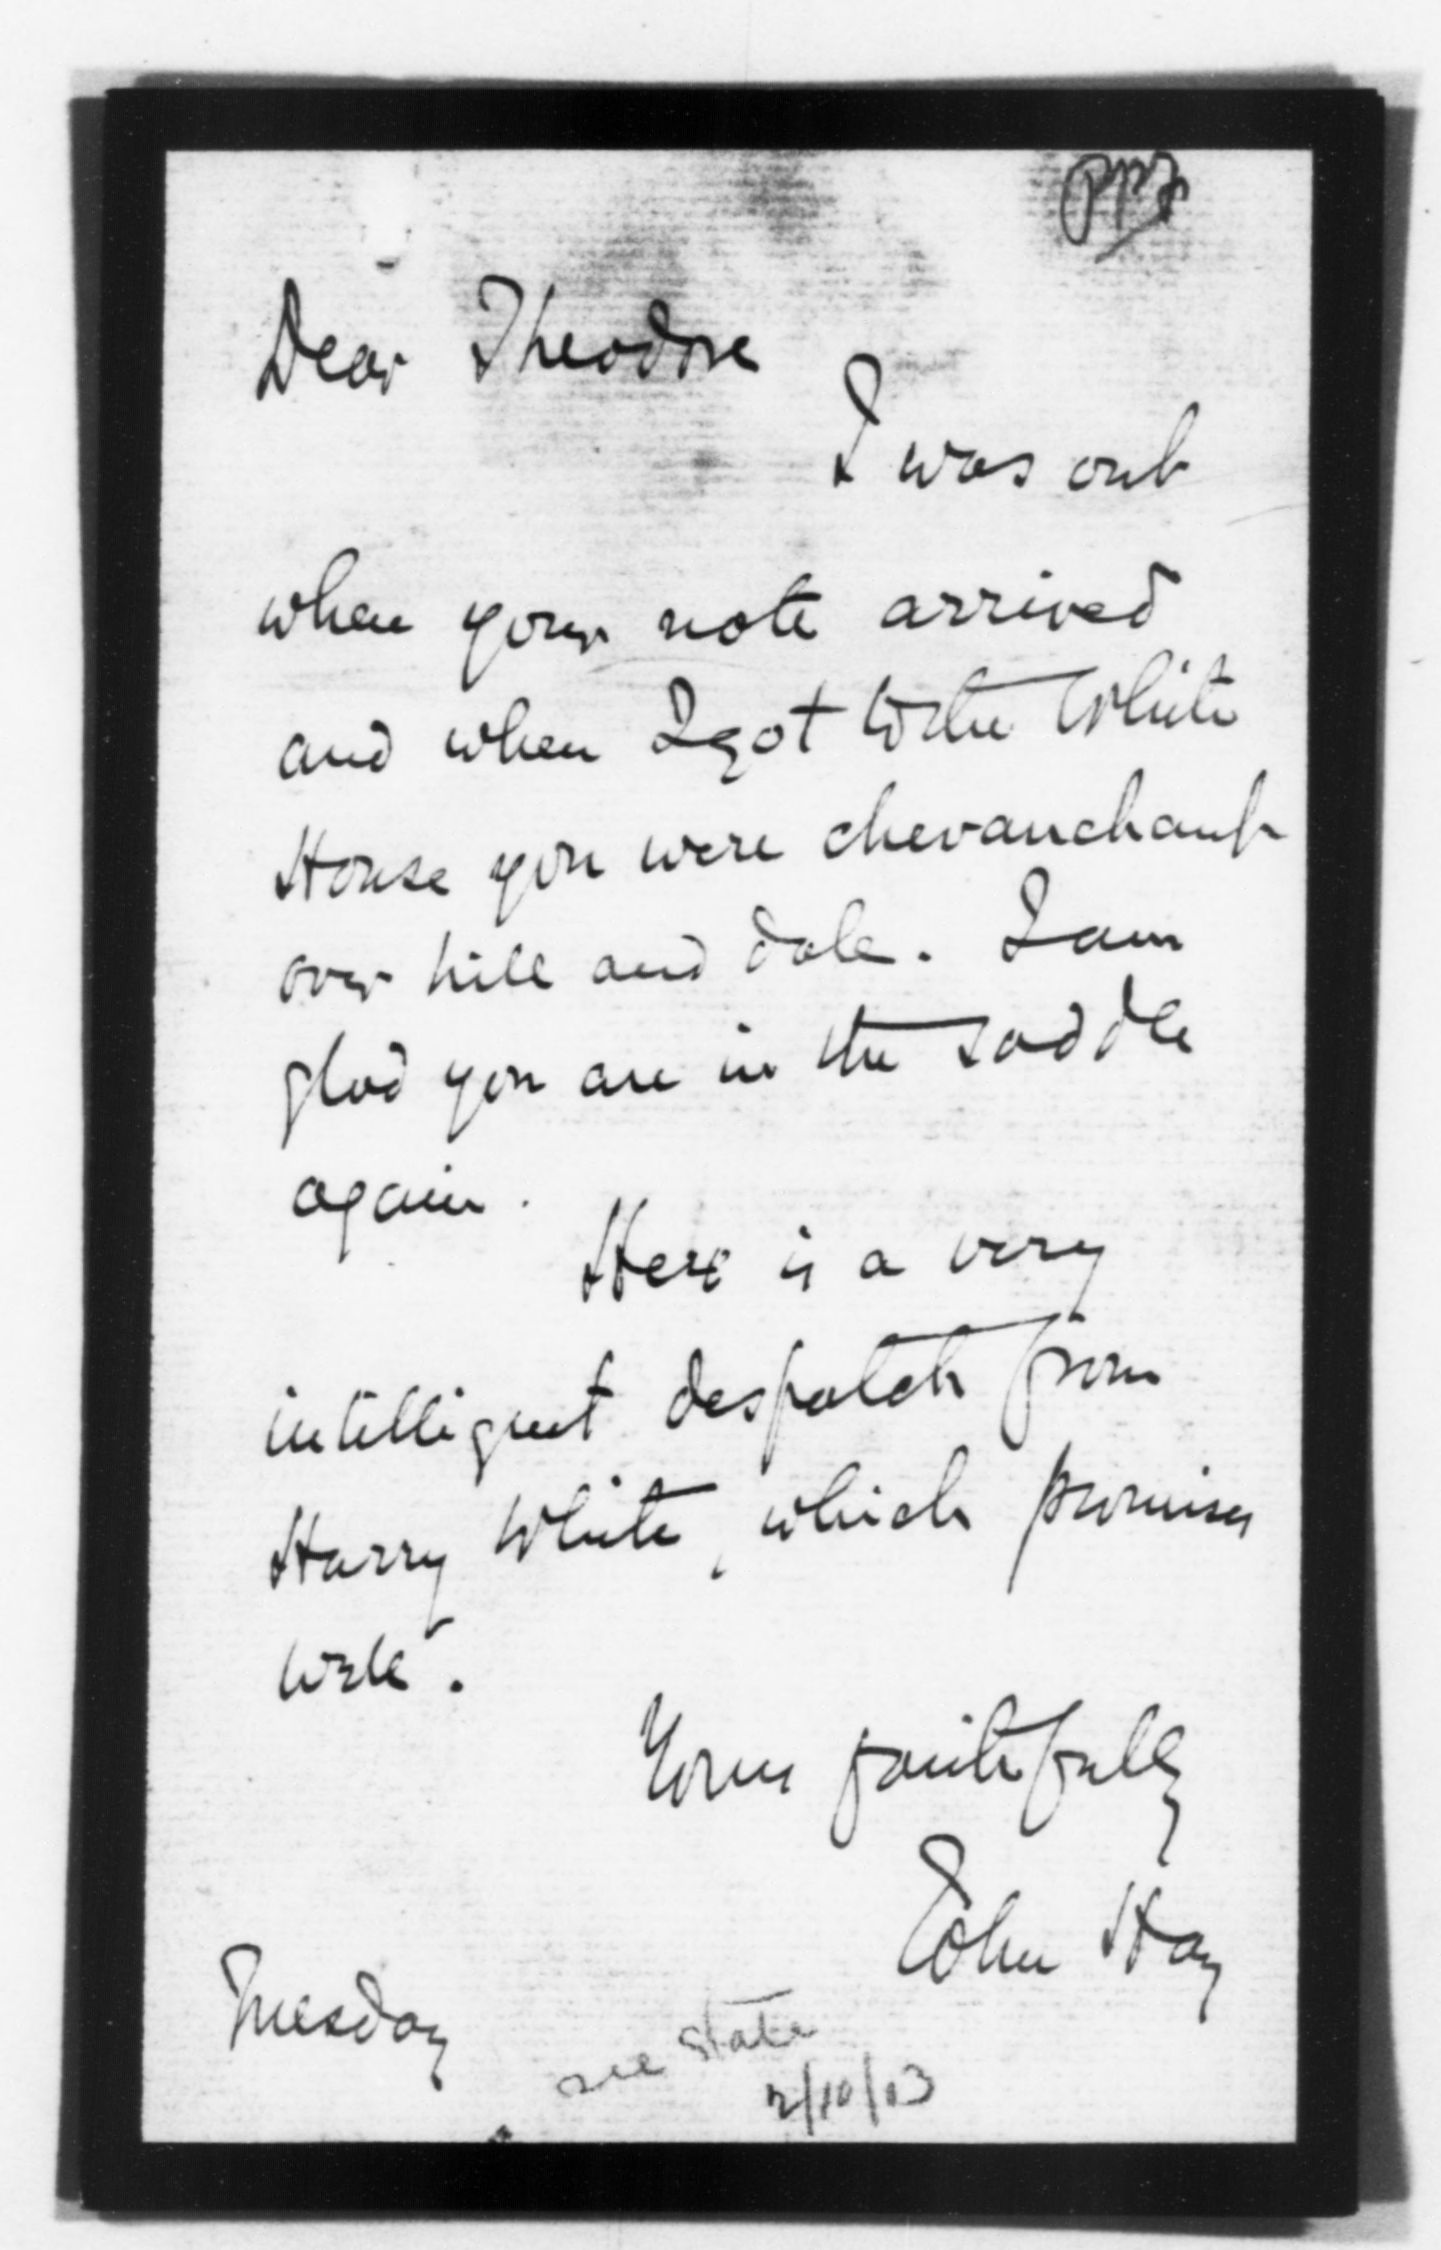 ppF
Dear Theodore
I was out
when your note arrived
and when I got to the White
House you were chevauchant
over hill and dale. I am
glad you are in the saddle
again.
Here is a very
intelligent despatch from
Harry White, which promises
well.
Yours faithfully
John Hay
Tuesday
see State
2/10/03